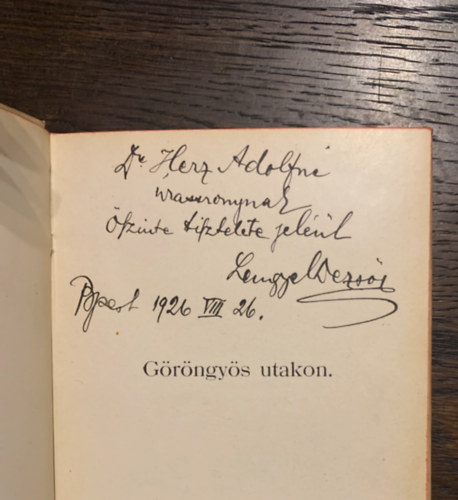 Dr Herz Adolfné
úrasszonynak
Őszinte tisztelete jeléül
Lengyel Dezsős
Bpest 1926 VIII 26.
Göröngyös utakon.